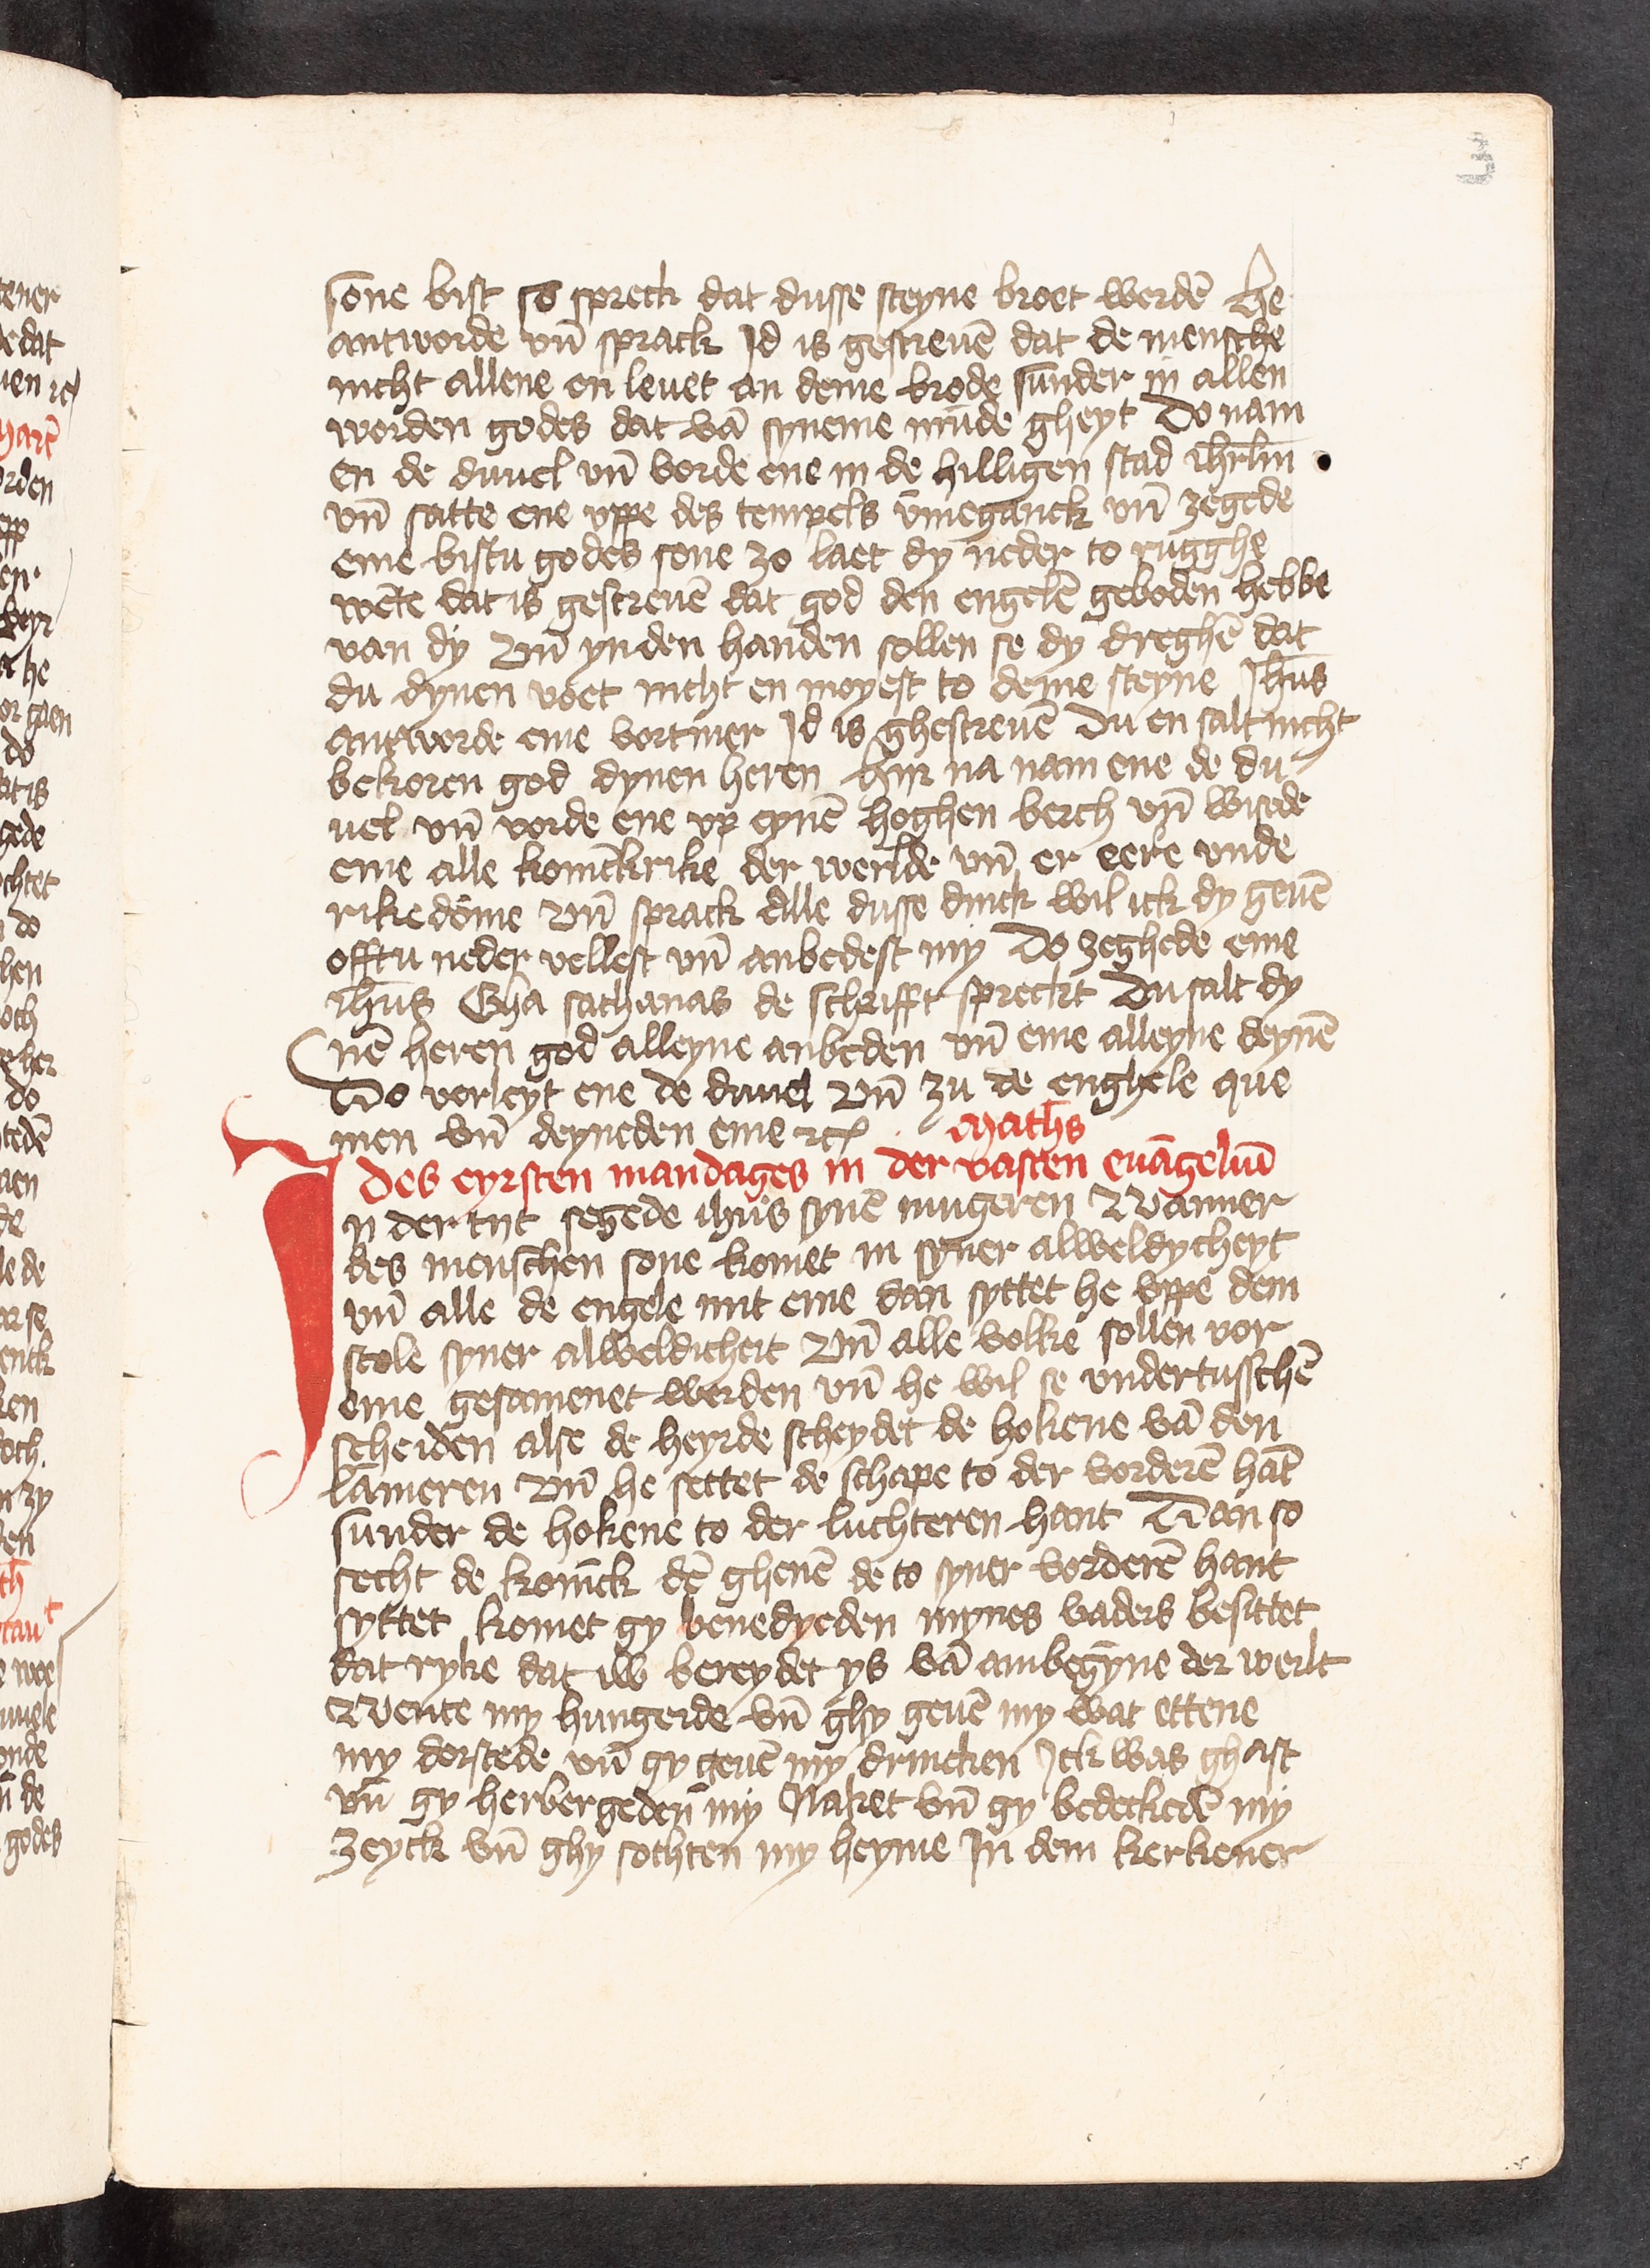 3
sone bist so spreck dat dusse steyne broet werdē he
antworde vn̄ sprack Jd is gescreuē dat de mensche
nicht allene en leuet an deme brode sunder in allen
worden godes dat vā syneme mūde gheyt Do nam
en de duuel vn̄ vorde ene in de hilligen stad ihrlm̄
vn̄ satte ene vppe des tempels v̄meganck vn̄ zegede
eme bistu godes sone zo laet dy neder to rugghe
wēte dat is gescreuē dat god den engelē geboden hebbe
van dy Vn̄ yn den handen sollen se dy dreghē dat
du dynen voet nicht en moyest to deme steyne Jhūs
antworde eme vortmer Jd is ghescreuē Du en salt nicht
bekoren god dynen heren Hyr na nam ene de du
uel vn̄ vorde ene vp eynē hoghen berch vn̄ wisede
eme alle konīckrike der werlde vn̄ er eere vnde
rikedōme Vn̄ sprack Alle dusse dinck wil ick dy geuē
offtu neder vellest vn̄ anbedest my Do zeghede eme
ihūs Gha sathanas de schrifft spreckt Du salt dy
nē heren god alleyne anbeden vn̄ eme alleyne deynē
Do verleyt ene de duuel Vn̄ zu de enghele que
men vn̄ deyneden eme ꝛc Maths
Des eyrsten mandages in der vasten euāgeliū
Jn der tijt segede ihūs synē iungeren Wanner
des menschen sone komet in syner alweldycheyt
vn̄ alle de engele mit eme dan syttet he vppe dem
stole syner alweldicheit Vn̄ alle volke sollen vor
eme gesamenet werden vn̄ he wil se vndertusschē
scheiden alse de heyrde scheydet de hokene vā den
lāmeren Vn̄ he settet de schape to der vorderē hāt
sunder de hokene to der luchteren hant Dan so
secht de konīck dē ghenē de to syner vorderē hant
syttet komet gy benedyeden mynes vaders besittet
dat ryke dat iw bereydet ys vā ambegȳne der werlt
Wente my hungerde vn̄ ghy geuē my wat ettene
my dorstede vn̄ gy geuē my drincken Jck was ghast
vn̄ gy herbergeden my Naket vn̄ gy bedeckedē my
Zeyck vn̄ ghy sochten my heyme Jn dem kerkener